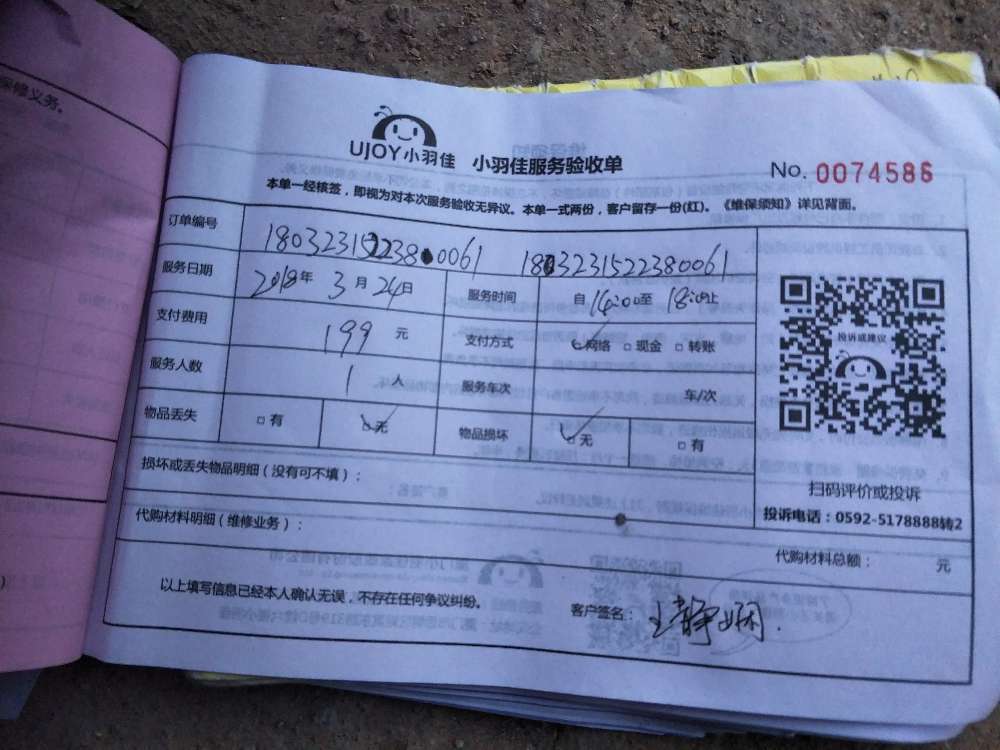 保修义务。
UJOY小羽佳 小羽佳服务验收单
No. 0074586
本单一经核签，即视为对本次服务验收无异议。本单一式两份，客户留存一份(红)。《维保须知》详见背面。
订单编号 1803231522380061 1803231522380061
服务日期 2018年3月24日 服务时间 自14:00至18:00止
支付费用 199元 支付方式 网络 现金 转账
服务人数 1人 服务车次 车/次
物品丢失 有 无 物品损坏 无 有
投诉或建议
扫码评价或投诉
投诉电话：0592-5178888转2
损坏或丢失物品明细（没有可不填）：
代购材料明细（维修业务）：
代购材料总额： 元
以上填写信息已经本人确认无误，不存在任何争议纠纷。
客户签名：王静娴